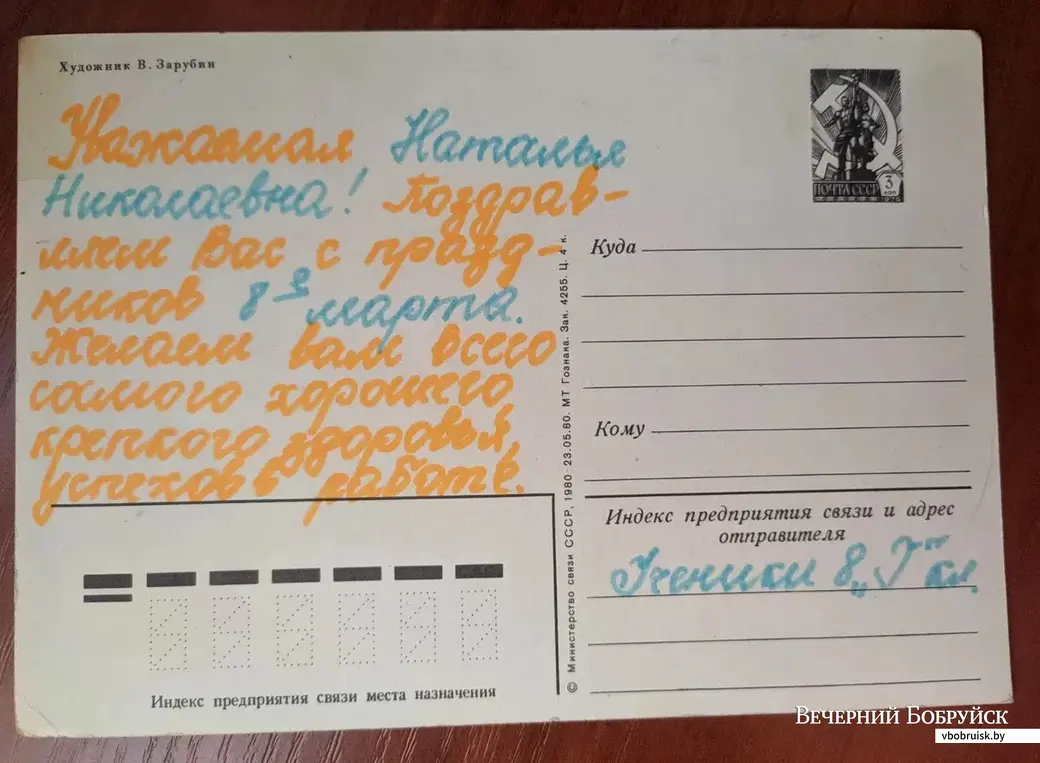 Художник В. Зарубин
Уважаемая Наталья
Николаевна! Поздрав-
ляем Вас с празд-
ников 8 ое марта.
Желаем вам всего
самого хорошего,
крепкого здоровья,
успехов в работе.
ПОЧТА СССР
3 КОП
1976
Куда
Кому
Индекс предприятия связи и адрес
отправителя
Ученики 8 „Г" кл.
© Министерство связи СССР, 1980 · 23.05.80. МТ Гознака. Зак. 4255. Ц. 4 к.
Индекс предприятия связи места назначения
ВЕЧЕРНИЙ БОБРУЙСК
vbobruisk.by